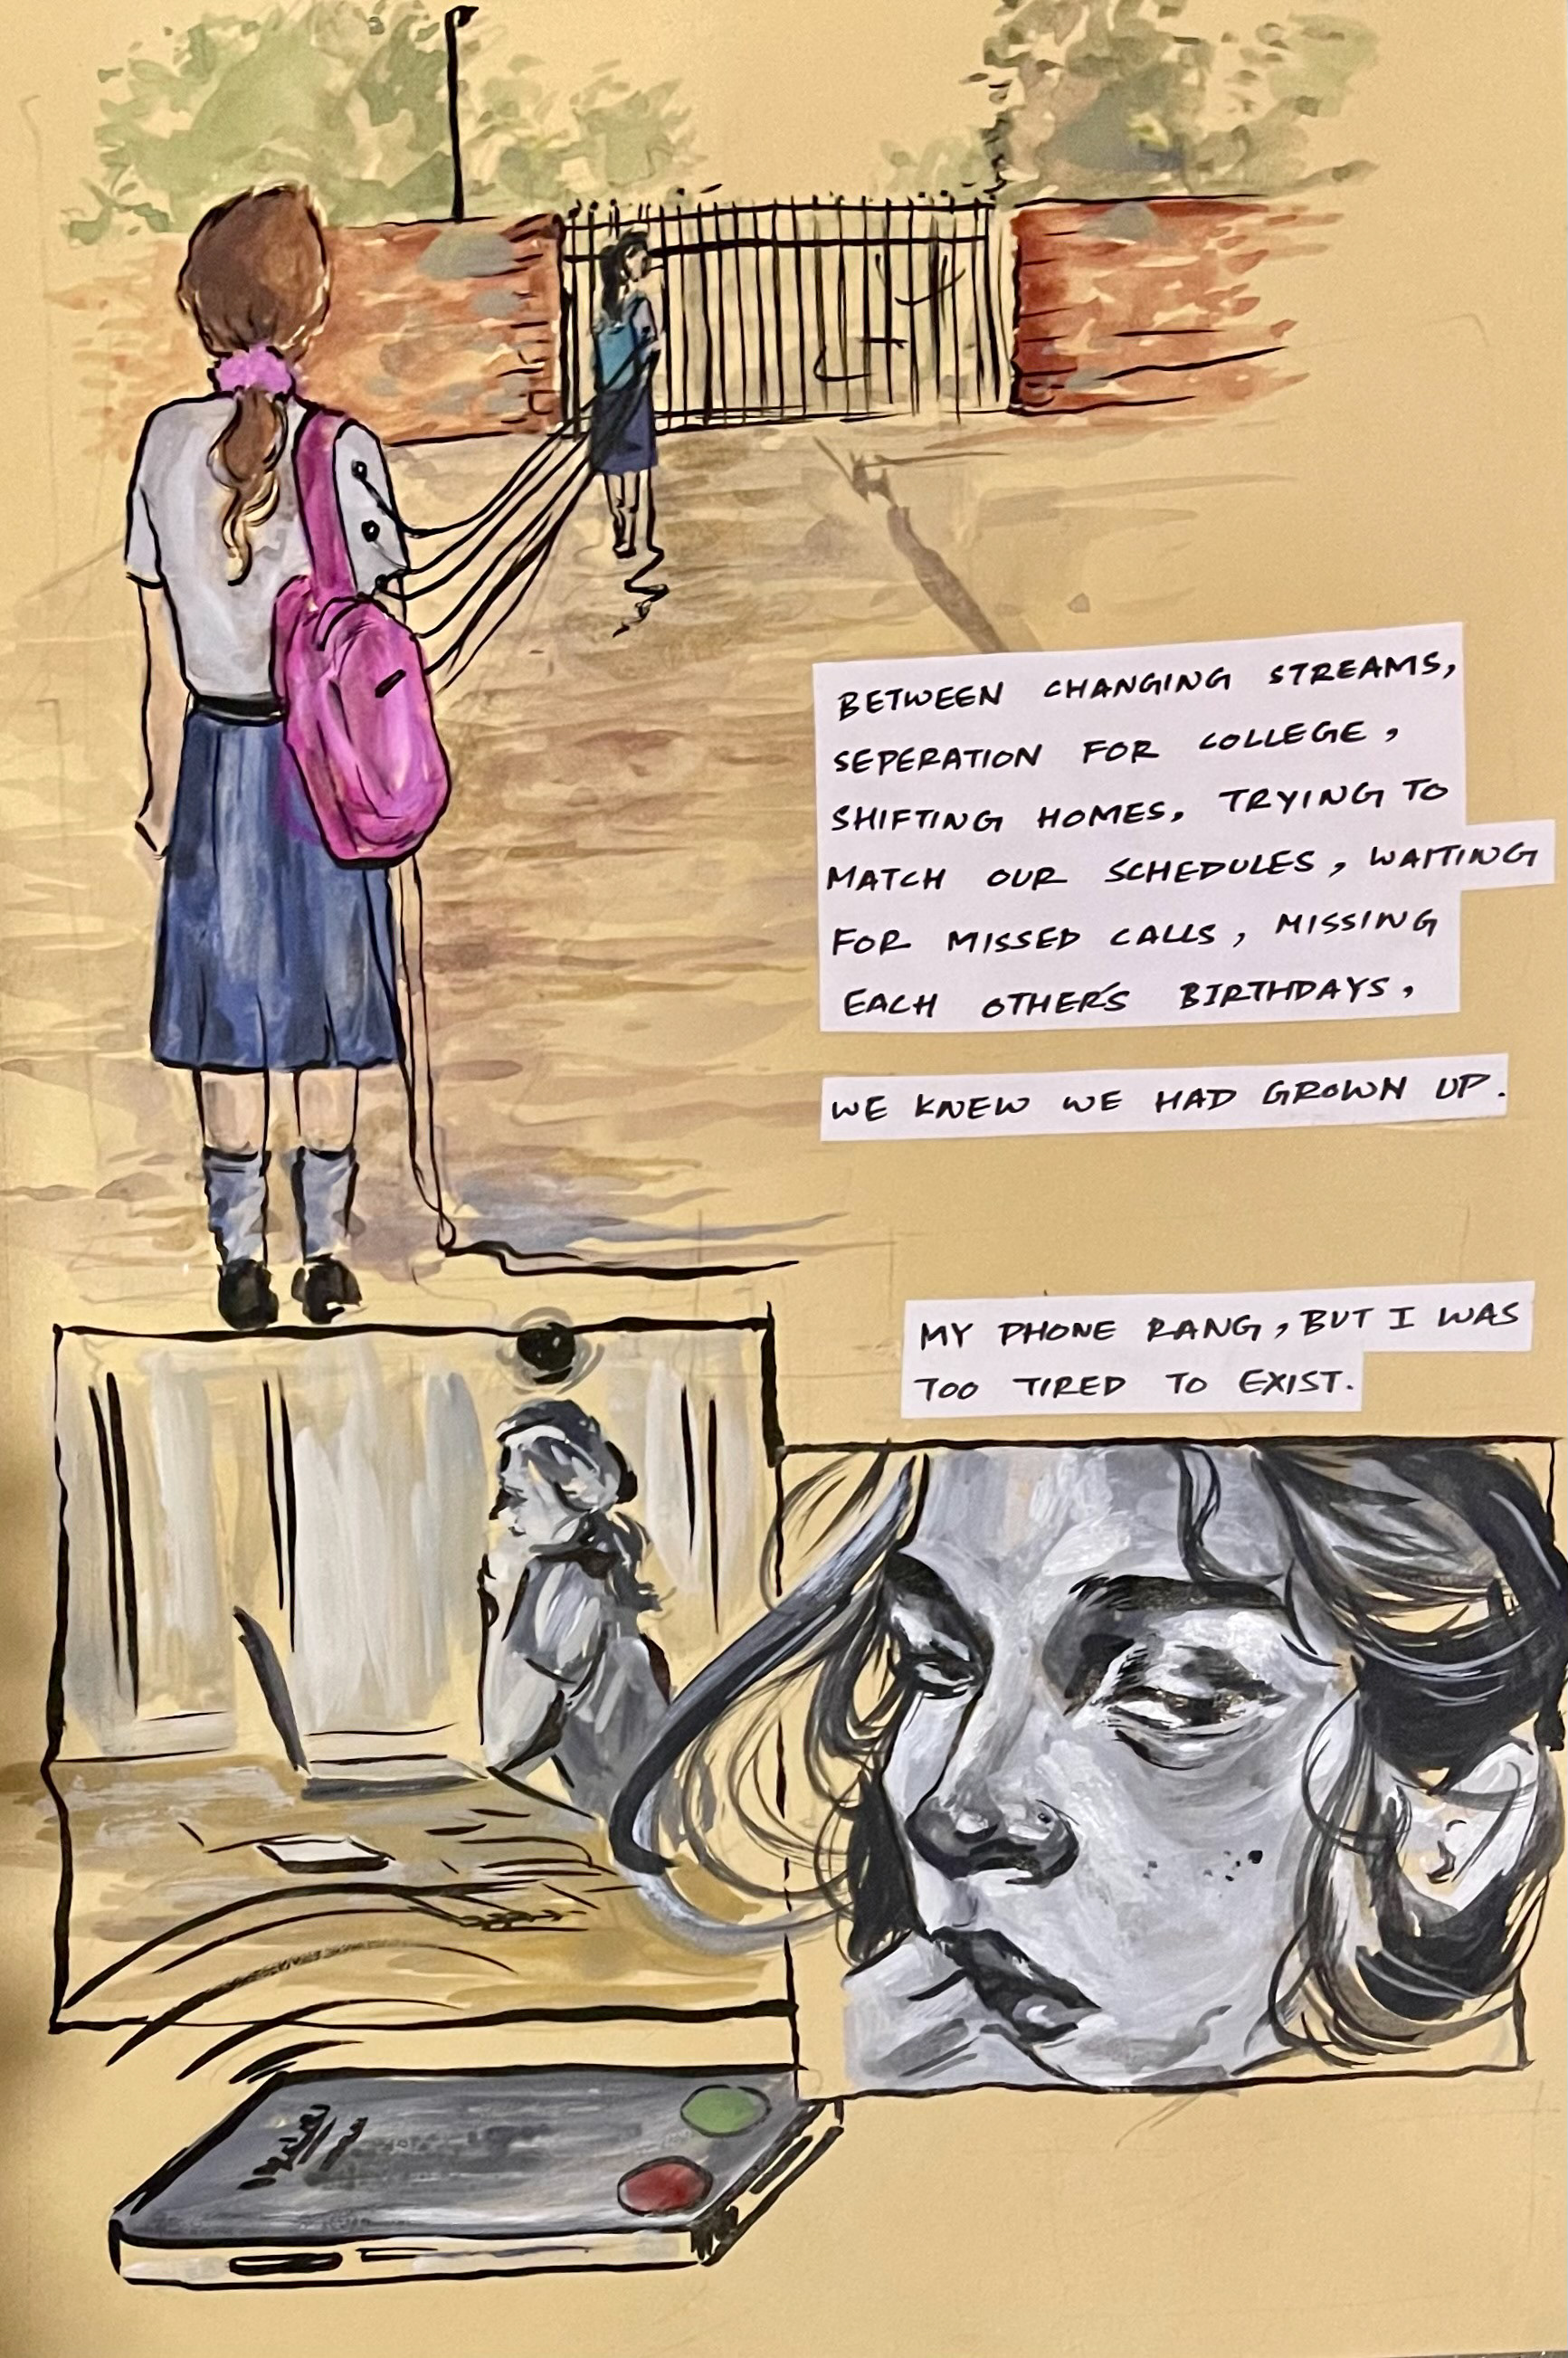 BETWEEN CHANGING STREAMS,
SEPERATION FOR COLLEGE,
SHIFTING HOMES, TRYING TO
MATCH OUR SCHEDULES, WAITING
FOR MISSED CALLS, MISSING
EACH OTHER'S BIRTHDAYS,
WE KNEW WE HAD GROWN UP.
MY PHONE RANG, BUT I WAS
TOO TIRED TO EXIST.